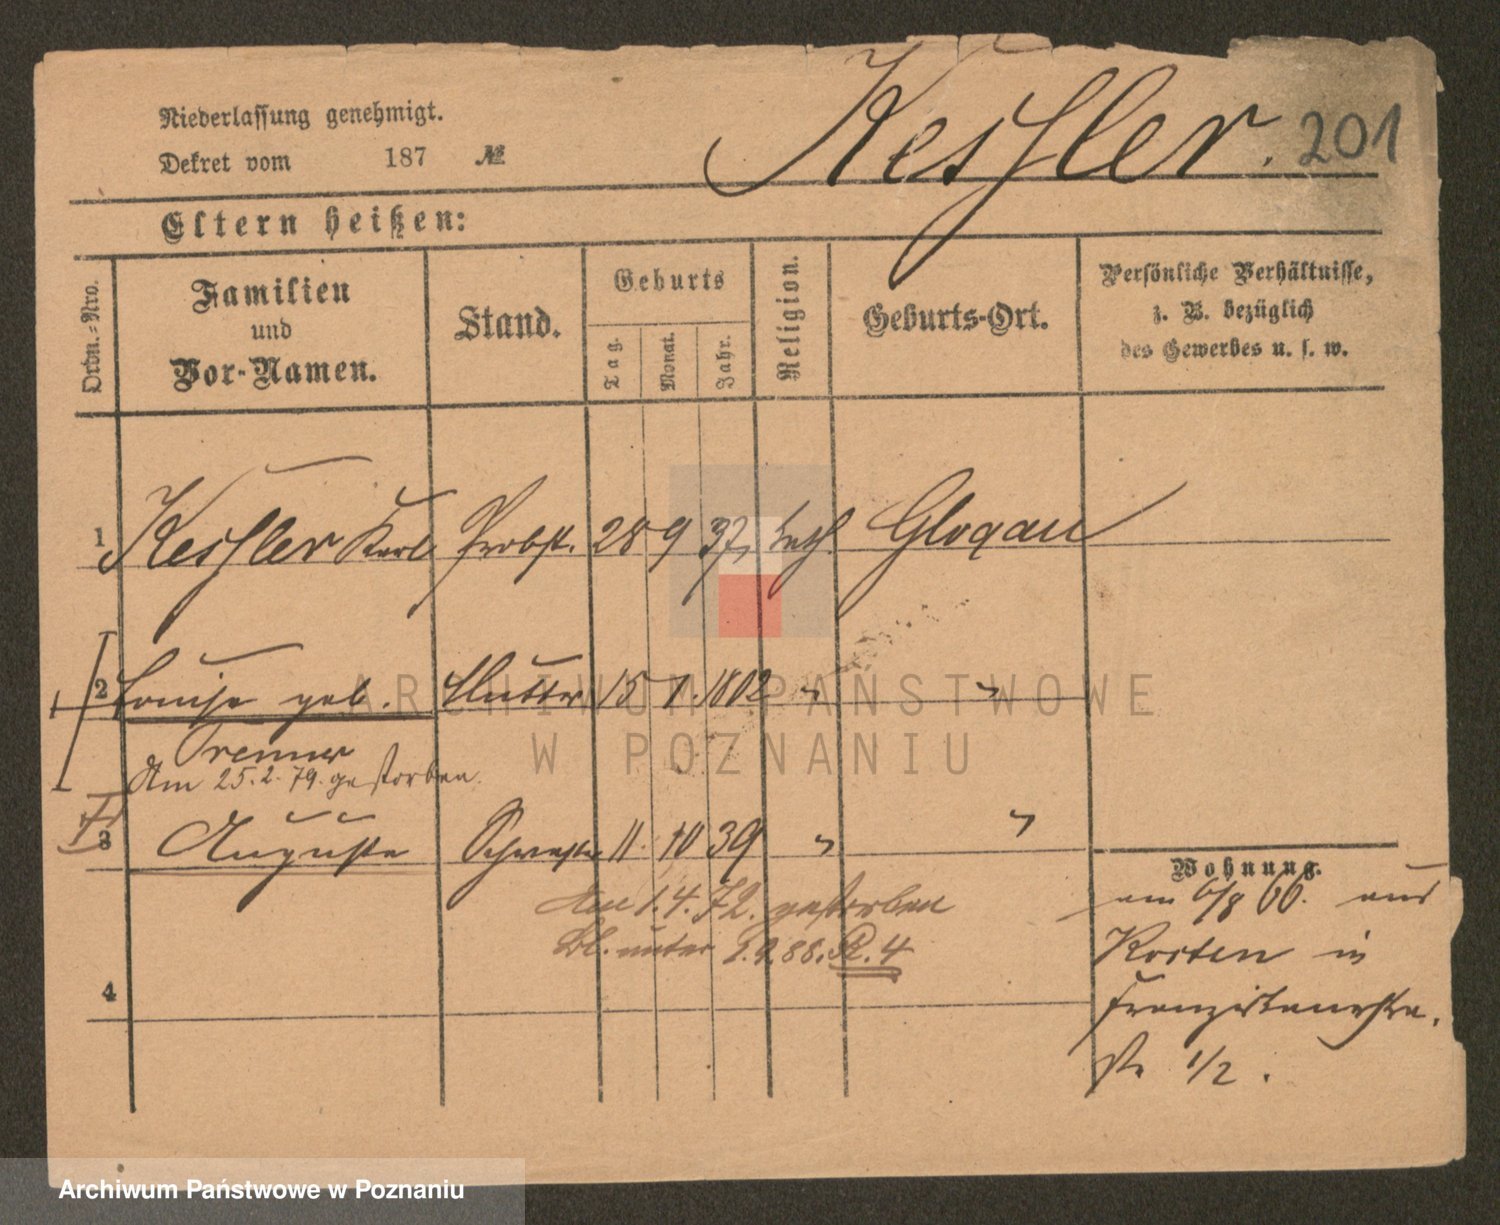 Niederlassung genehmigt.
Dekret vom 187 №
Kessler. 201
Eltern heißen:
Ordn.-Nro.
Familien und Vor-Namen.
Stand.
Geburts
Tag.
Monat.
Jahr.
Religion.
Geburts-Ort.
Persönliche Verhältnisse,
z. B. bezüglich
des Gewerbes u. s. w.
1 Kessler Karl Probst. 28 9 37, kath Glogau
2 Louise geb. Mutter 15 7. 1802 " "
Am 25.2.79. gestorben.
3 Auguste Schwester 11. 10 39 " "
Am 1.4.72. gestorben
4
Wohnung.
am 6/8 66. aus
Kosten in
1/2.
ARCHIWUM PAŃSTWOWE
W POZNANIU
Archiwum Państwowe w Poznaniu